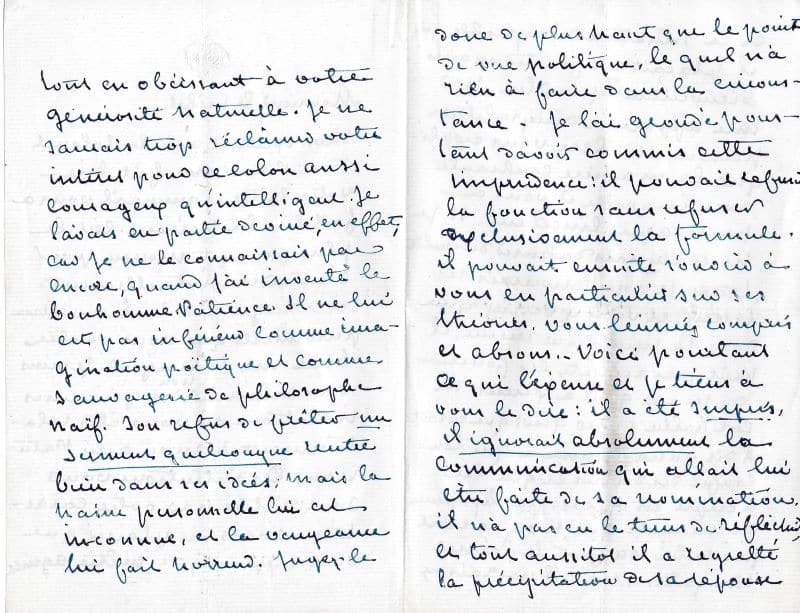 tout en obéissant à votre
générosité naturelle. Je ne
saurais trop réclamer votre
intérêt pour ce colon aussi
courageux qu'intelligent. Je
l'avais en partie deviné, en effet,
car je ne le connaissais pas
encore, quand j'ai inventé le
bonhomme Patience. Il ne lui
est pas inférieur comme ima-
gination poëtique et comme
sauvagerie de philosophe
naïf. Son refus de prêter un
serment quelconque rentre
bien dans ses idées; mais la
haine personnelle lui est
inconnue, et la vengeance
lui fait horreur. Jugez-le
donc de plus haut que le point
de vue politique, le quel n'a
rien à faire dans la circons-
tance. Je l'ai grondé pour-
tant d'avoir commis cette
imprudence: il pouvait refuser
la fonction sans refuser
exclusivement la formule.
il pouvait ensuite s'ouvrir à
vous en particulier sur ses
théories. vous l'eussiez compris
et absous.. Voici pourtant
ce qui l'excuse et je tiens à
vous le dire: il a été surpris,
il ignorait absolument la
communication qui allait lui
être faite de sa nomination.
il n'a pas eu le tems de réfléchir,
et tout aussitot il a regretté
la précipitation de sa réponse